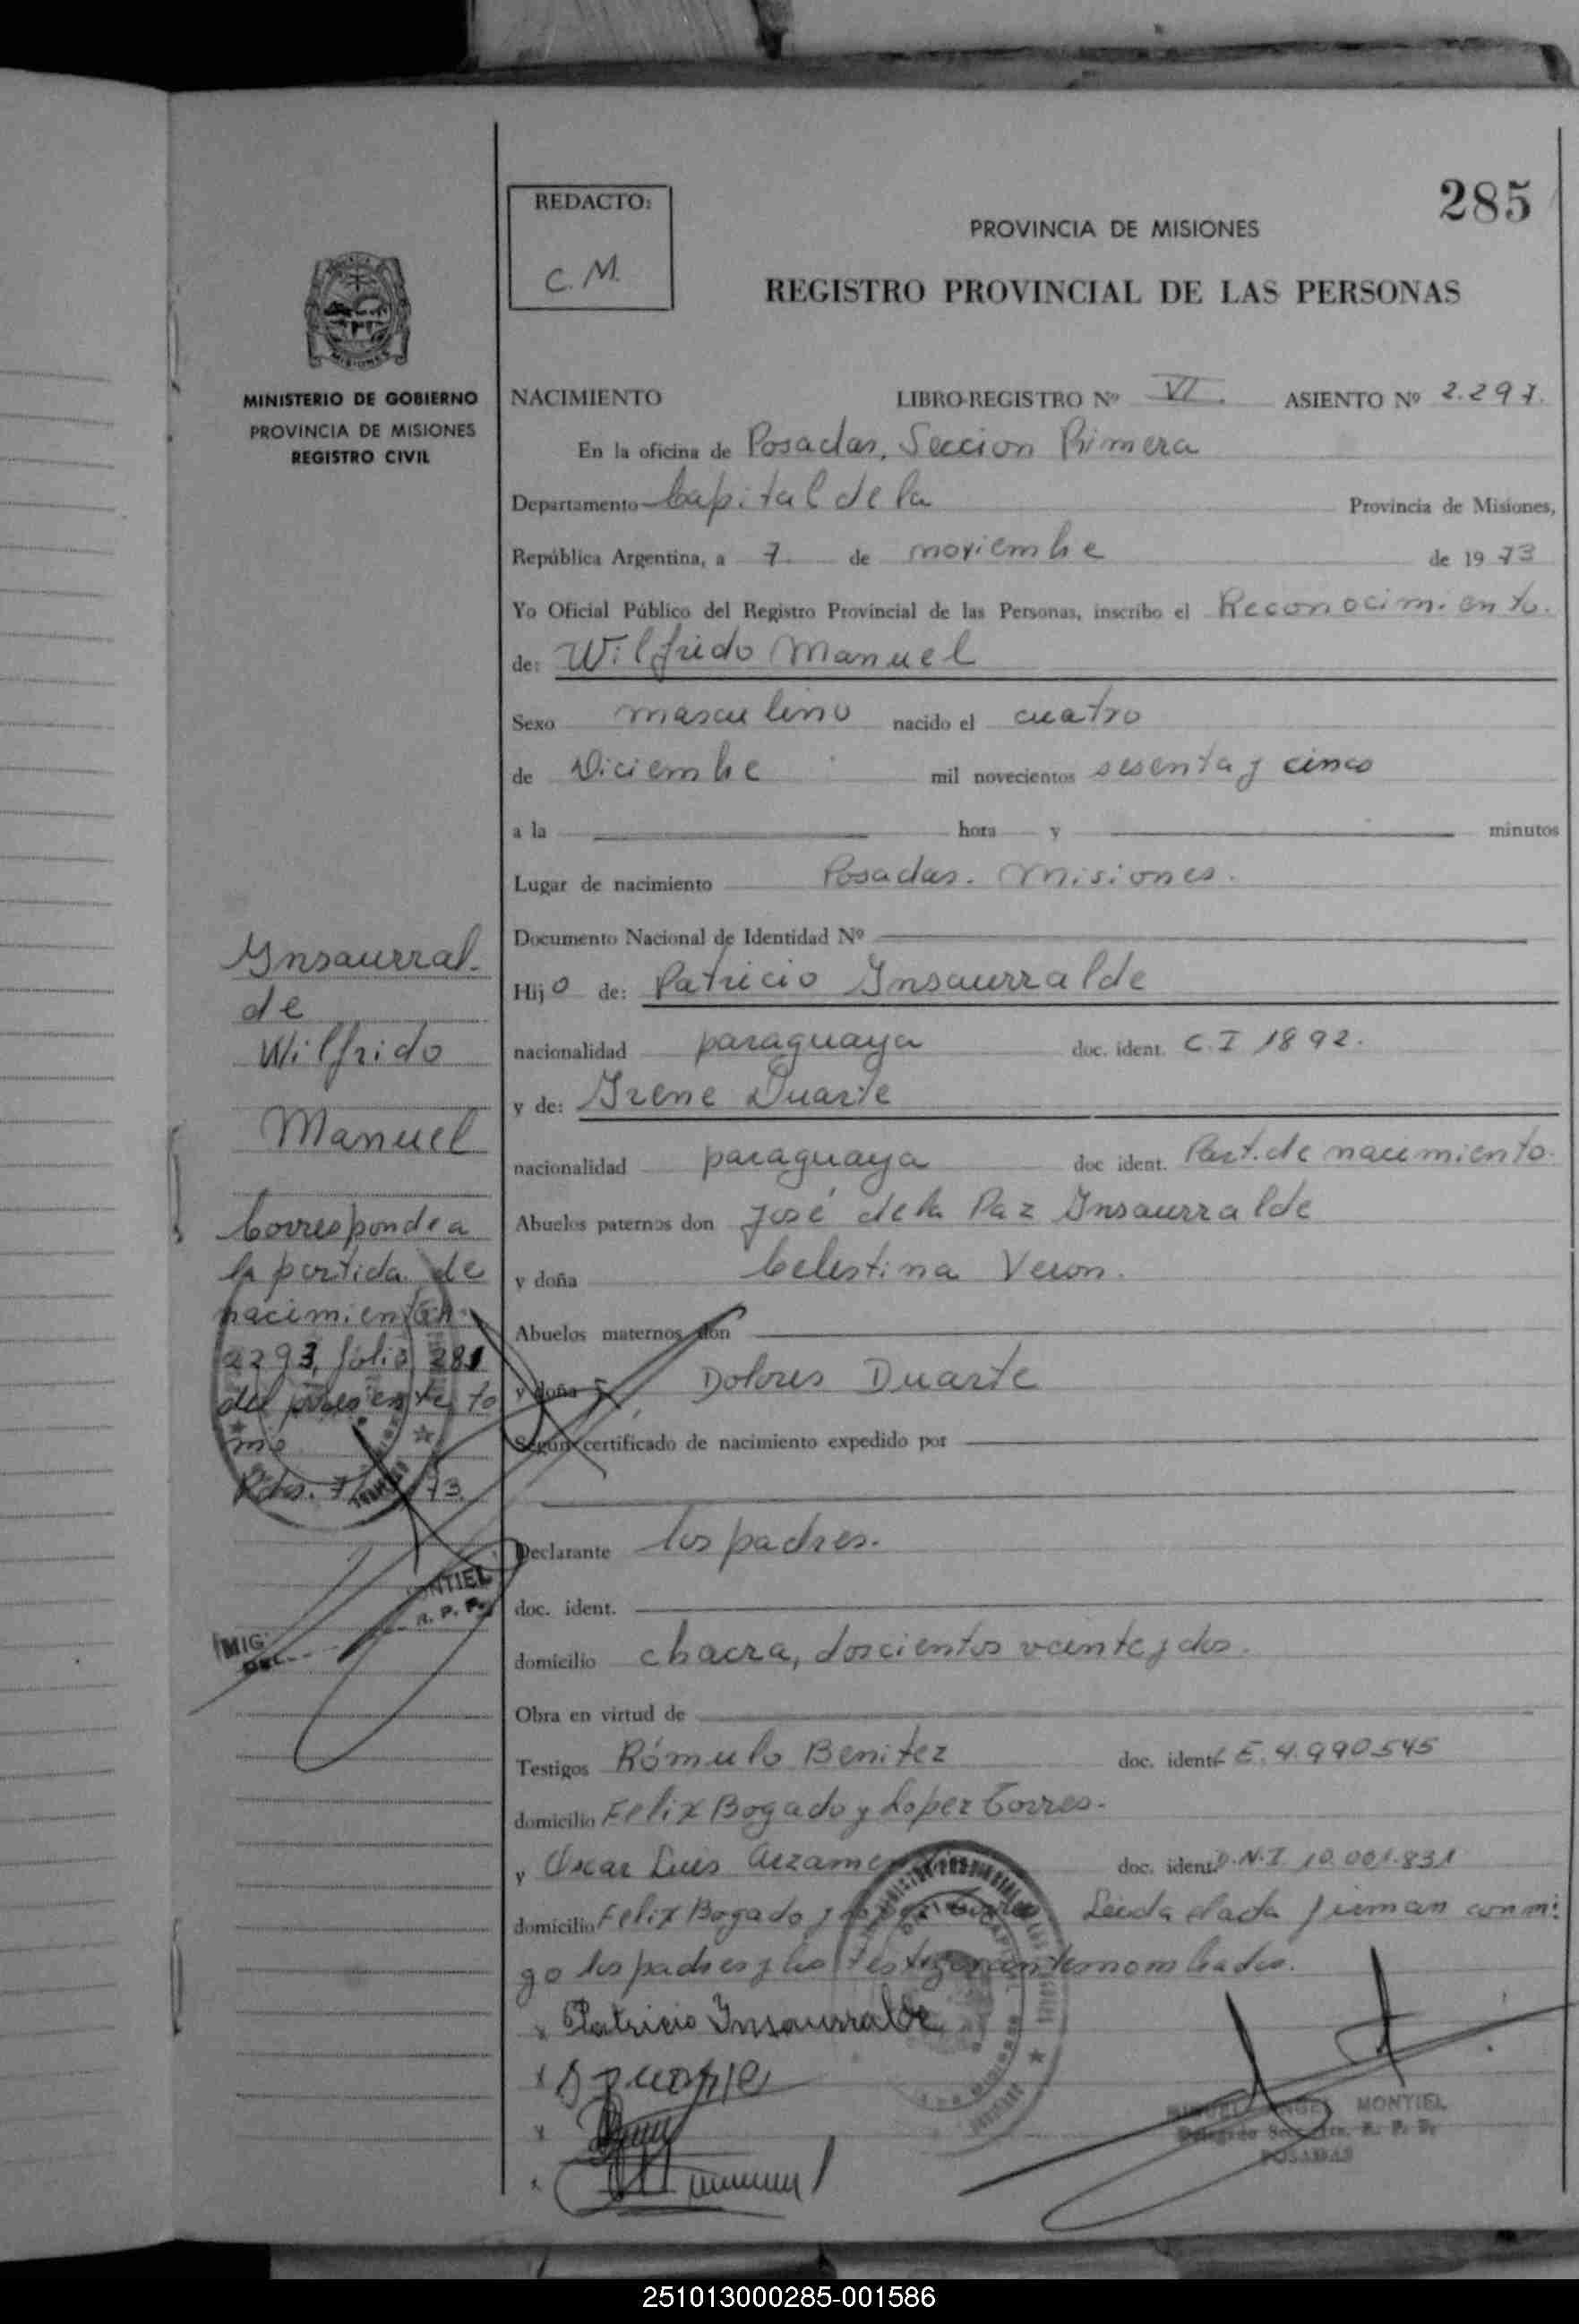 285
REDACTO:
C.M.
PROVINCIA DE MISIONES
REGISTRO PROVINCIAL DE LAS PERSONAS
MINISTERIO DE GOBIERNO
PROVINCIA DE MISIONES
REGISTRO CIVIL
NACIMIENTO LIBRO-REGISTRO Nº VI. ASIENTO Nº 2.297.
En la oficina de Posadas, Seccion Primera
Departamento Capital de la Provincia de Misiones,
República Argentina, a 7 de noviembre de 1973
Yo Oficial Público del Registro Provincial de las Personas, inscribo el Reconocimiento.
de: Wilfrido Manuel
Sexo masculino nacido el cuatro
de Diciembre mil novecientos sesenta y cinco
a la hora y minutos
Lugar de nacimiento Posadas. Misiones.
Documento Nacional de Identidad Nº
Hijo de: Patricio Insaurralde
nacionalidad paraguaya doc. ident. C.I 1892.
y de: Irene Duarte
nacionalidad paraguaya doc ident. Part. de nacimiento.
Abuelos paternos don José de la Paz Insaurralde
y doña Celestina Veron.
Abuelos maternos don
y doña Dolores Duarte
Según certificado de nacimiento expedido por
Declarante los padres.
doc. ident.
domicilio chacra, doscientos veinte y dos.
Obra en virtud de
Testigos Rómulo Benitez doc. ident. E. 4.990545
domicilio Felix Bogado y Lopez Torres.
y Oscar Luis doc. ident. D.N.I 10.001.831
domicilio Felix Bogado y Leida el acta firman conmi
go los padres y los testigos antes nombrados.
x Patricio Insaurralde
x
x
x
Insaurral-
de
Wilfrido
Manuel
Corresponde a
la partida de
nacimiento n.
2293, folio 281
del presente to
mo
Pdas. 7 73
MONTIEL
R. P. P.
MIG
MIGUEL ANGEL MONTIEL
Delegado R. P. P.
POSADAS
251013000285-001586